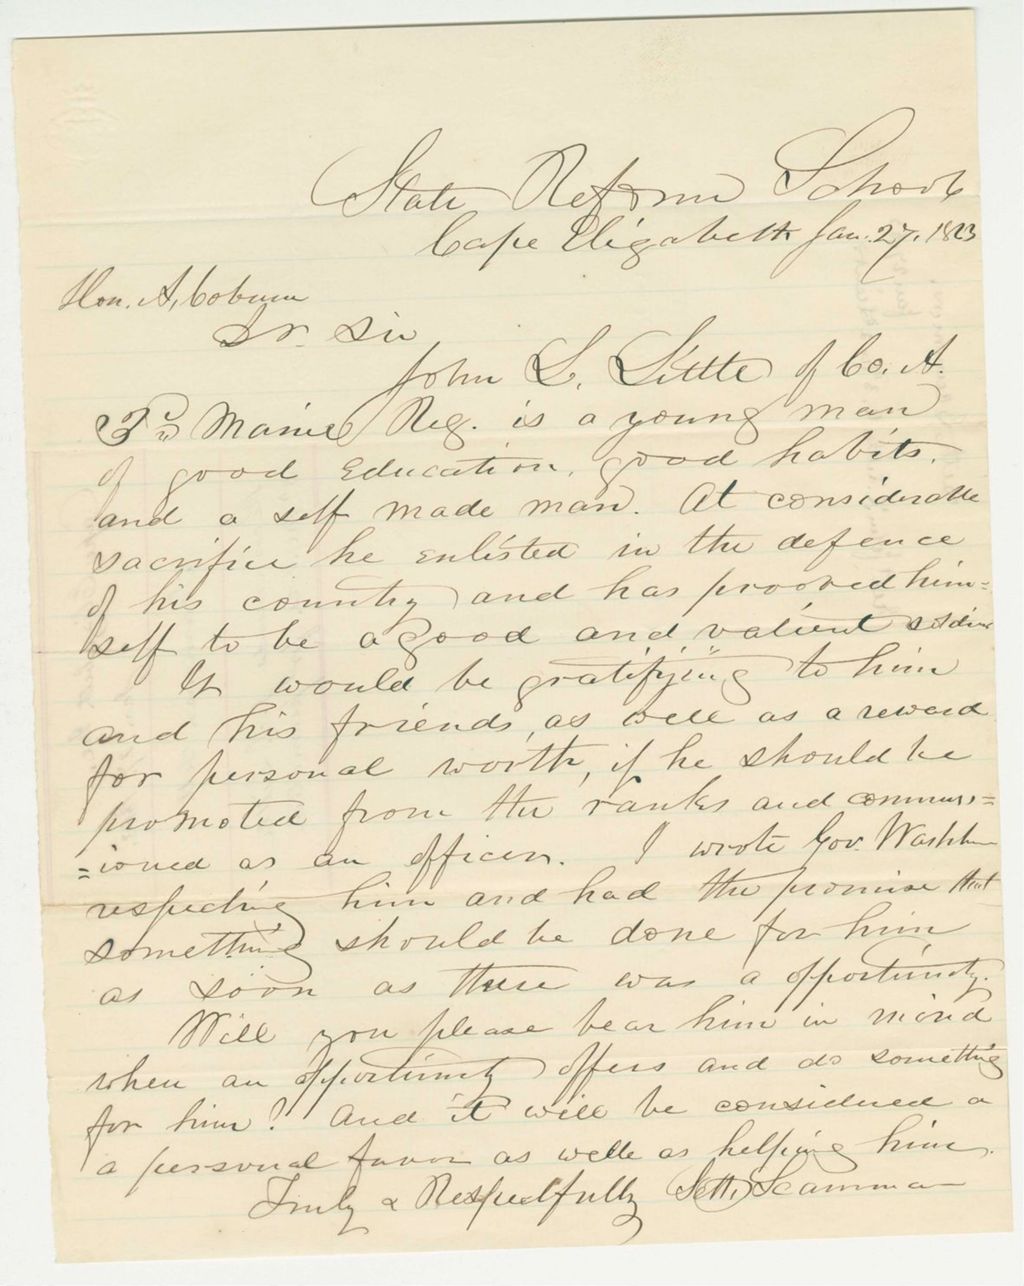 State Reform School
Cape Elizabeth Jan. 27. 1863
Hon. A, Coburn
Dr Sir
John L. Little of Co. A.
Maine Reg. is a young man
of good Education, good habits,
and a self made man. At considerable
sacrifice he enlisted in the defence
of his country and has prooved him=
self to be a good and valient soldier
It would be gratifying to him
and his friends, as well as a reward
for personal worth, if he should be
promoted from the ranks and commiss=
=ioned as an officer. I wrote Gov. Washburn
respecting him and had the promise that
something should be done for him
as soon as there was a opportunity.
Will you please bear him in mind
when an opportunity offers and do something
for him? And it will be considered a
a personal favor as well as helping him.
Truly & Respectfully Seth Scamman